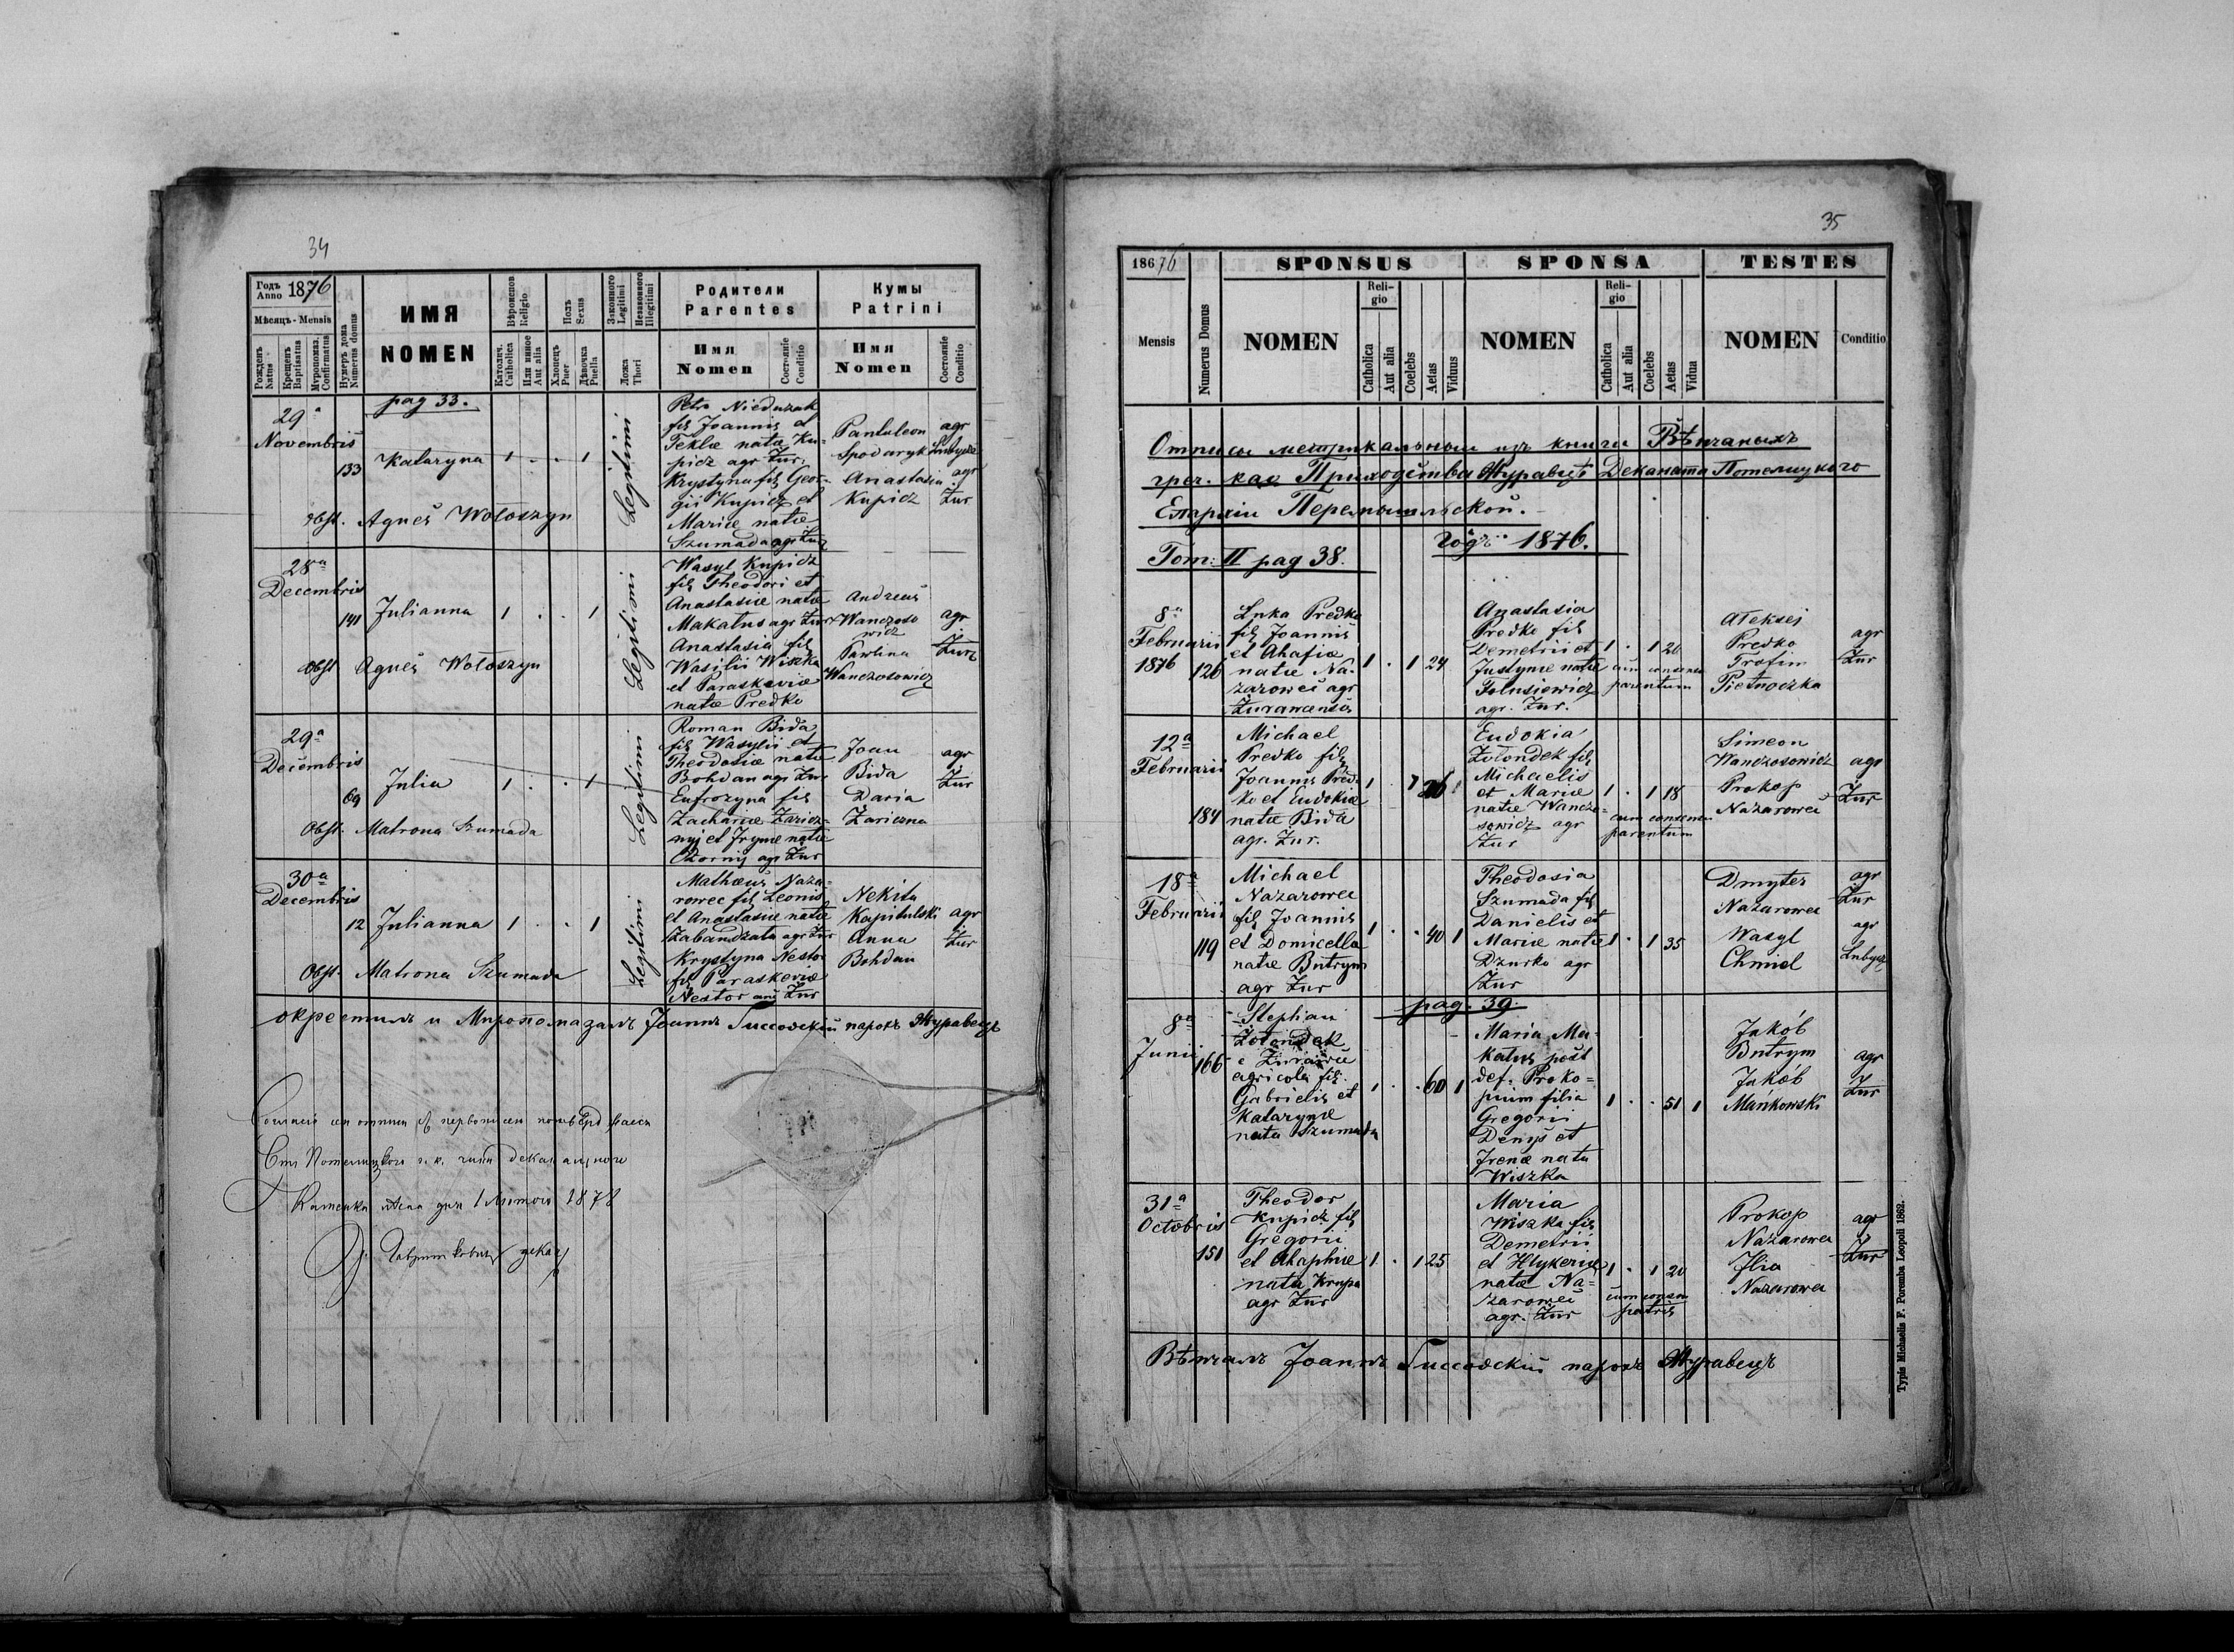 34
Годъ Anno 1876
Мѣсяцъ - Mensis
Рожденъ Natus
Крещенъ Baptisatus
Мѵропомаз. Confirmatus
Нумеръ дома Numerus domus
ИМЯ
NOMEN
Вѣроиспов Religio
Католич. Catholica
Или инное Aut alia
Полъ Sexus
Хлопецъ Puer
Дѣвочка Puella
Законного Legitimi
Незаконного Illegitimi
Ложа Thori
Родители
Parentes
Имя Nomen
Состояніе Conditio
Кумы
Patrini
Имя Nomen
Состояніе Conditio
pag 33.
29a
Novembris
133 Katarzyna 1 . . 1
Legitimi
obst. Agnes Wołoszyn
Petro
fil Joannis et
Teklæ natæ Ku-
picz agr Żur.
Krystyna fil Geor-
gii Kupicz et
Mariæ natæ
Szumada agr Żur
Pantuleon agr
Spodaryk
Anastasia agr
Kupicz Żur
28a
Decembris
141 Julianna 1 . . 1
Legitimi
Obst Agnes Wołoszyn
Wasyl Kupicz
fil Theodori et
Anastasiæ natæ
Makatus agr Żur
Anastasia fil
Wasilii Wiszka
et Paraskeviæ
natæ Predko
Andreas
Wanczoso
wicz agr
Pawlina Żur
Wanczosowicz
29a
Decembris
69 Julia 1 . . 1
Legitimi
Obst. Matrona Szumada
Roman Bida
fil Wasylii et
Theodosiæ natæ
Bohdan agr Żur
Eufrozyna fil
Zachariæ Zaricz-
nyj et Irynæ natæ
Czornij agr Żur
Joan agr
Bida Żur
Daria
Zariczna
30a
Decembris
12 Julianna 1 . . 1
Legitimi
Obst. Matrona Szumada
Mathæus Naza-
rowec fil Leonis
et Anastasiæ natæ
Zabandzała agr Żur
Krystyna Nestor
fil Paraskeviæ
Nestor Żur
Nekita
Kapitulski agr
Anna Żur
Bohdan
окрестилъ и Миропомазалъ Іоаннъ Гиссовскій парохъ Журавецъ
1878
35
1876
Mensis
Numerus Domus
SPONSUS
NOMEN
Reli-
gio
Catholica
Aut alia
Coelebs
Aetas
Viduus
SPONSA
NOMEN
Reli-
gio
Catholica
Aut alia
Coelebs
Aetas
Vidua
TESTES
NOMEN
Conditio
Отписы метрикальныи изъ книги Вѣнчаныхъ
греч. каѳ Приходства Журавцѣ Деканата Потелицкого
Епархіи Перемышльской.
Tom: II pag 38. годъ 1876.
8a
Februarii
1876 126
Luka Predko
fil Joannis
et Ahafiæ
natæ Na-
zarowec agr
Żuravcensis
1 . 1 24
Anastasia
Predko fil
Demetrii et
Justynæ natæ
agr. Żur.
1 . 1 20
cum consensu
parentum
Aleksej
Predko
Trofim
Pietnoczka
agr
Żur
12a
Februarii
184
Michael
Predko fil
Joannis Pred-
ko et Eudokiæ
natæ Bida
agr. Żur.
1 . 1 26
Eudokia
Żołondek fil
Michaelis
et Mariæ
natæ Wanczo-
sowicz agr
Żur
1 . 1 18
cum consensu
parentum
Simeon
Wanczosowicz agr
Prokop Żur
Nazarowec
18a
Februarii
119
Michael
Nazarowec
fil Joannis
et Domicella
natæ Butrym
agr Żur
1 . . 40 1
Theodosia
Szumada fil
Danielis et
Mariæ natæ
Dzurko agr
Żur
1 . 1 35
Dmyter agr
Nazarowec Żur
Wasyl agr
Chmiel Lubycz
pag. 39.
8a
Junii
166
Stephan
Żołondek
e Żurawce
agricola fil.
Gabrielis et
Katarynæ
nata Szumada
1 . . 60 1
Maria Ma-
katus post
def. Proko=
pium filia
Gregorii
Denys et
Irenæ nata
Wiszka
1 . . 51 1
Jakób
Butrym agr
Jakób Żur
Mańkowski
31a
Octobris
151
Theodor
Kupicz fil
Gregorii
et Ahaphiæ
nata Krupa
agr Żur
1 . 1 25
Maria
Wiszka fil
Demetrii
et Hlykeriæ
natæ Na=
zarowec
agr. Żur
1 . 1 20
cum consen
patris
Prokop agr
Nazarowec Żur
Ilia
Nazarowec
Вѣнчалъ Іоаннъ Гиссовскій парохъ Журавецъ
Typis Michaelis F. Poremba Leopoli 1862.